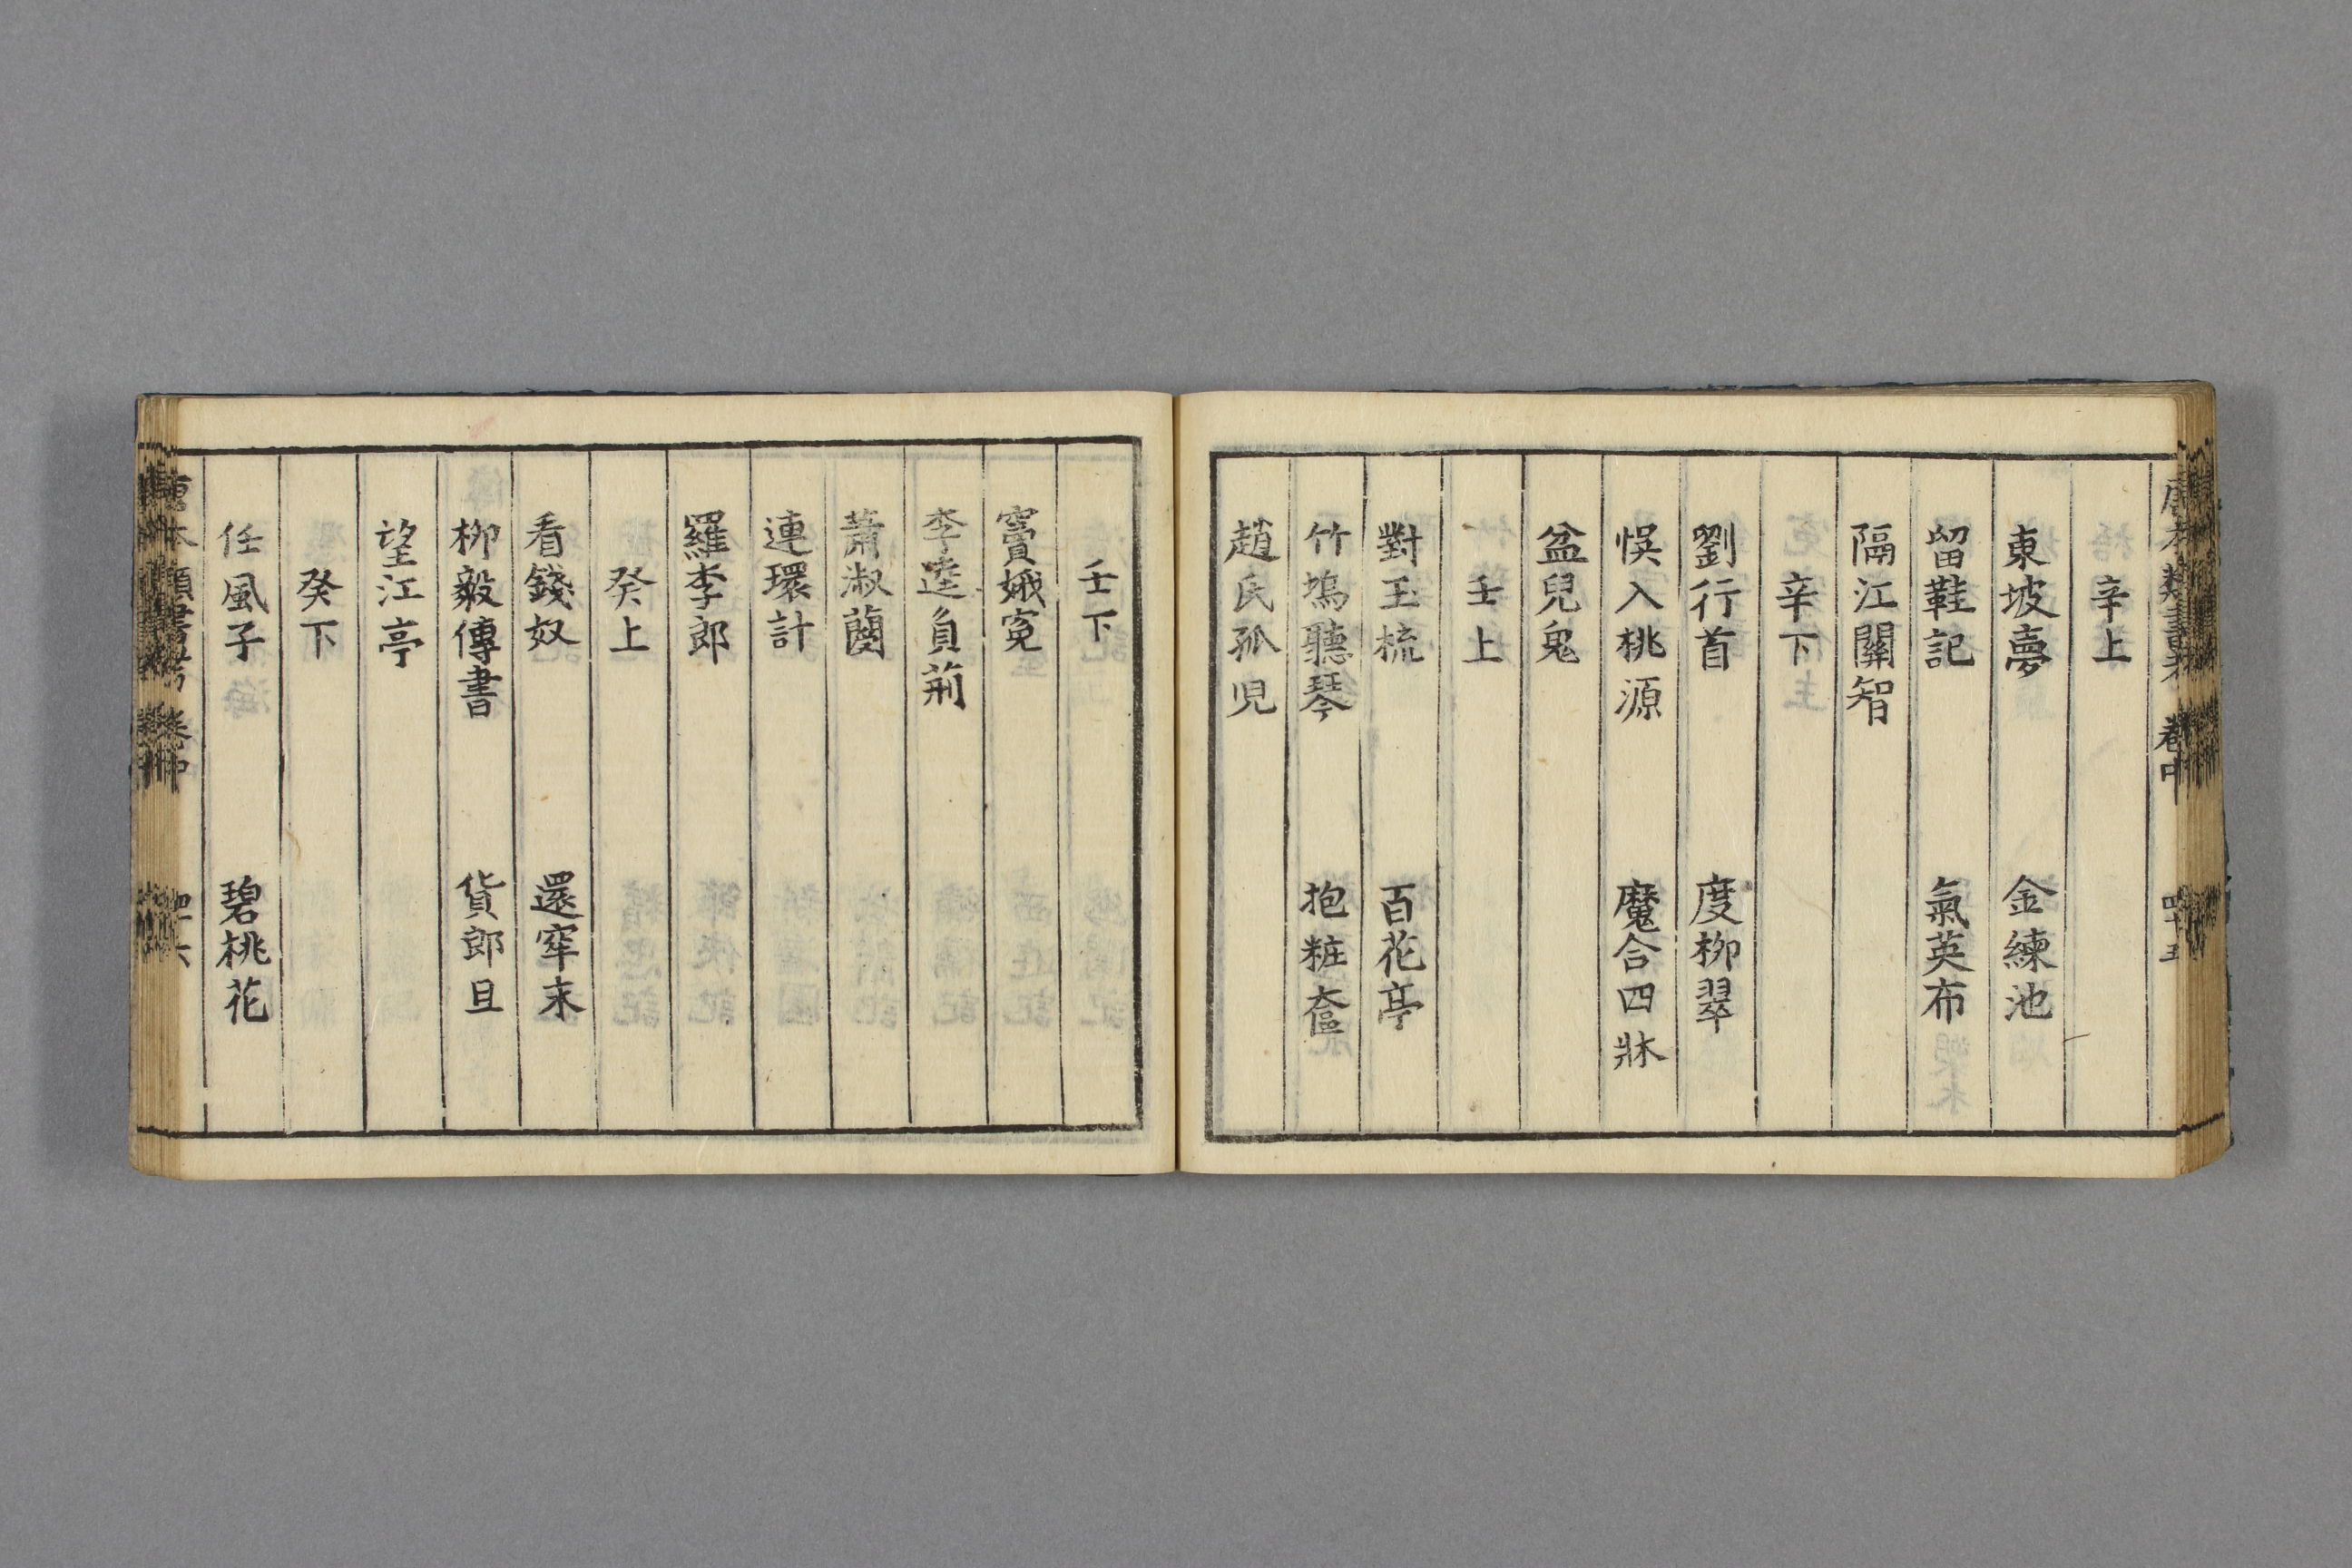 辛上
東坡夢　金練池
留鞋記　氣英布
隔江鬪智
辛下
劉行首　度柳翠
悞入桃源　魔合四牀
盆兒鬼
壬上
對玉梳　百花亭
竹塢聽琴　抱粧奩
趙氏孤児
壬下
竇娥寃
李逵負荊
蕭淑蘭
連環計
羅李郎
癸上
看錢奴　還牢末
柳毅傳書　貨郎旦
望江亭
癸下
任風子　碧桃花
卷中